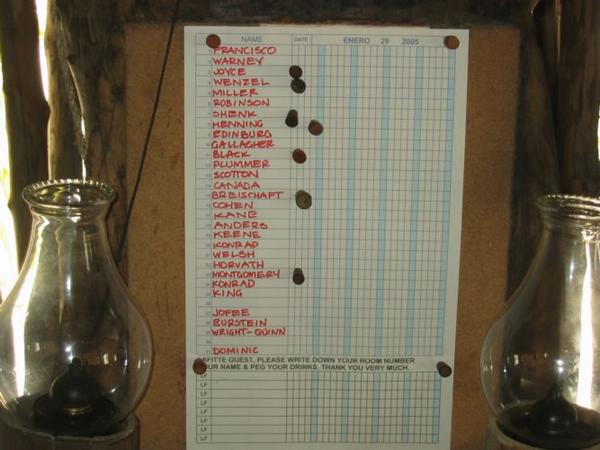 NAME DATE ENERO 29 2005
FRANCISCO
WARNEY
JOYCE
WENZEL
MILLER
ROBINSON
SHENK
HENNING
EDINBURG
GALLAGHER
BLACK
PLUMMER
SCOTTON
CANADA
BREISCHAFT
COHEN
KANE
ANDERS
KEENE
KONRAD
WELSH
HORVATH
MONTGOMERY
KONRAD
KING
JOFEE
BURSTEIN
WRIGHT-QUINN
DOMINIC
LAFITTE GUEST, PLEASE WRITE DOWN YOUR ROOM NUMBER
YOUR NAME & PEG YOUR DRINKS. THANK YOU VERY MUCH.
LF
LF
LF
LF
LF
LF
LF
LF